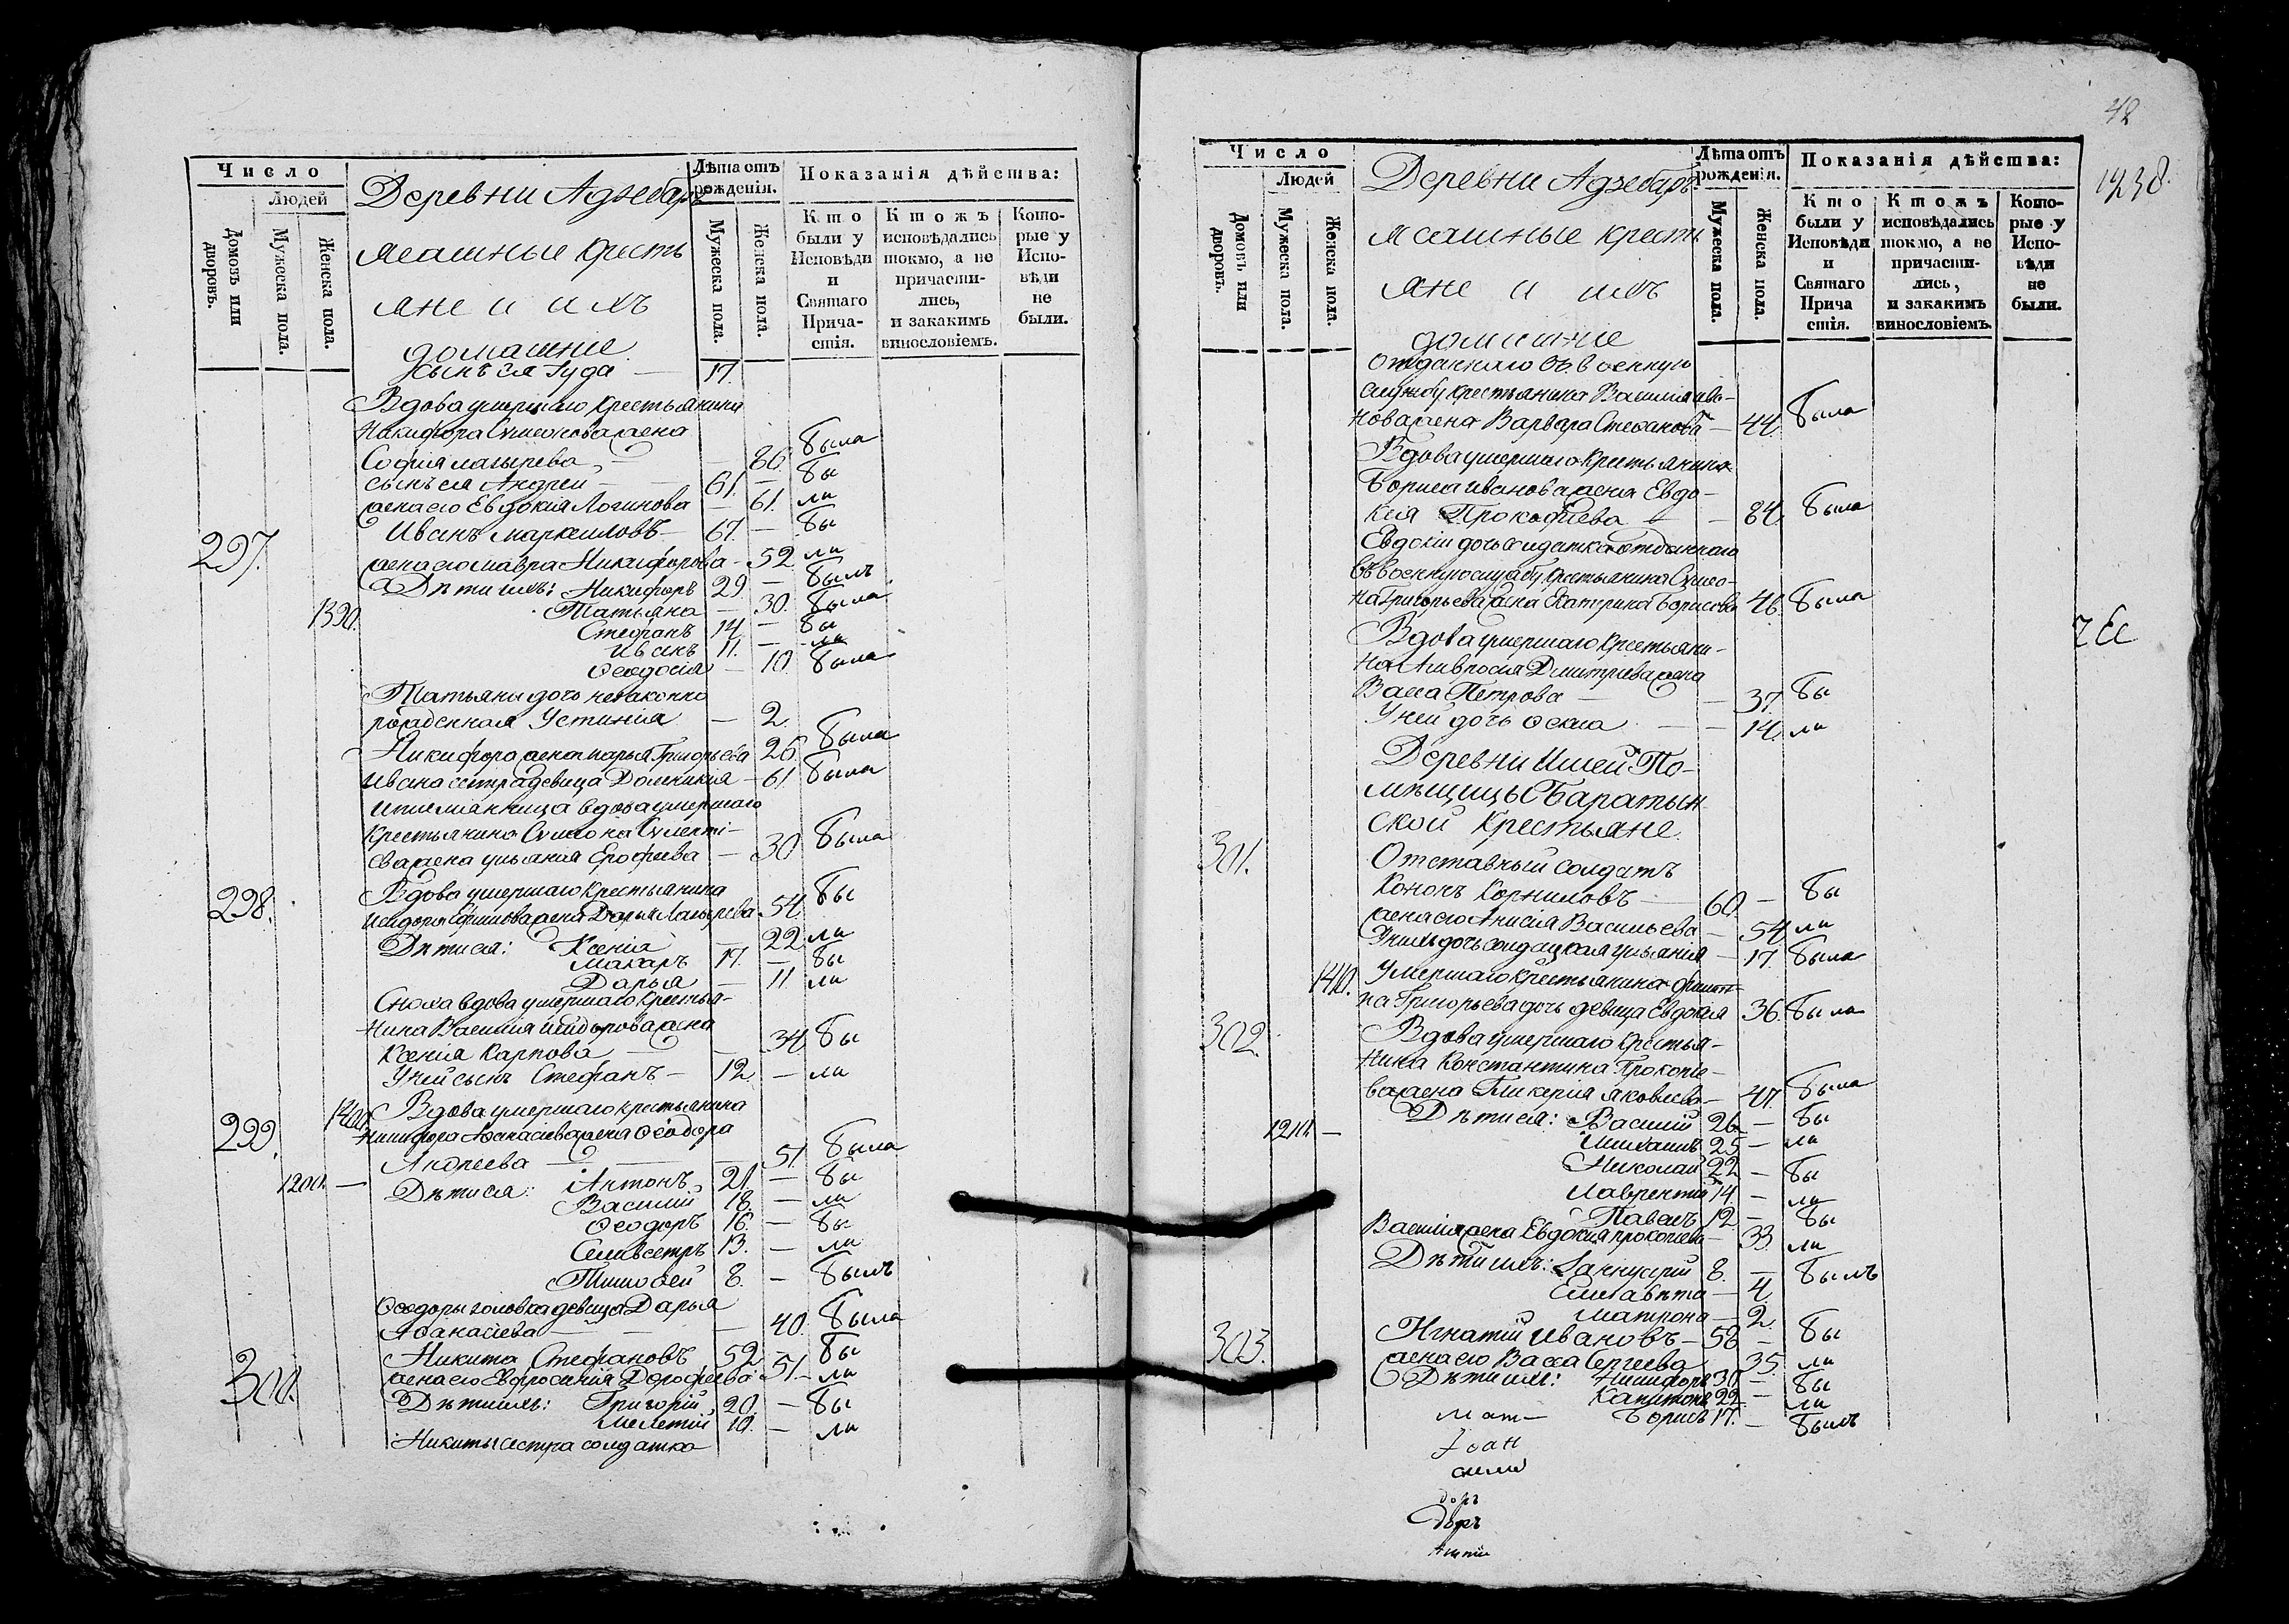 Число
Людей
Домовъ или дворовъ.
Мужеска пола.
Женска пола.
Деревни Адзебаръ
ясашные кресть
яне и ихъ
домашние
Лѣта отъ рожденія.
Мужеска пола.
Женска пола.
Показанія дѣйства:
Кто были у Исповѣди и Святаго Причастія.
Ктожъ исповѣдались токмо, а не причастились, и закакимъ винословіемъ.
Которые у Исповѣди не были.
сынъ ея Іуда — 17.
Вдова умершаго крестьянина
Никифора Симеонова жена
Софія Лазырева — 86. была
сынъ ея Андрей — 61. — бы
жена его Евдокія Логинова — 61. ли
297. Иванъ Маркеловъ — 67. — бы
жена его Мавра Никифорова — 52 ли
Дѣти ихъ: Никифоръ 29 — былъ
Татьяна — 30. была
1390.
Стефанъ 14 — бы
Иванъ 11. — ли
Ѳеодосія — 10. была
Татьяны дочь незаконно
рожденная Устинія — 2.
Никифора жена Марья Григорьева 26. была
Ивана сестра девица Домникія — 61. была
племянница вдова умершаго
крестьянина Симеона
жена Ульянія Ерофеева — 30 была
298. Вдова умершаго крестьянина
Исидора жена Дарья Лазырева 54. бы
Дѣти ея: Ксенія — 22 ли
Макаръ 17. — бы
Дарья — 11 ли
Сноха вдова умершаго крестья-
нина Василія Исидорова жена
Ксенія Карпова — 34 бы
У ней сынъ Стефанъ — 12 — ли
1400.
299. Вдова умершаго крестьянина
Никифора Аѳанасіева жена Ѳеодора
Андреева — 51. была
1200. — Дѣти ея: Антонъ 21. — бы
Василій 18. — ли
Ѳеодоръ 16. — бы
Селивестръ 13. — ли
Тимоѳей 8. — былъ
Ѳеодоры золовка девица Дарья
Аѳанасіева — 40. была
300. Никита Стефановъ 52 — бы
жена его Евфросинія Дорофеева 51. — ли
Дѣти ихъ: Григорій 20. — бы
Мелетій 10. — ли
Никиты сестра солдатка
42
1238.
Число
Людей
Домовъ или дворовъ.
Мужеска пола.
Женска пола.
Деревни Адзебаръ
ясашные кресть
яне и ихъ
домашние
Лѣта отъ рожденія.
Мужеска пола.
Женска пола.
Показанія дѣйства:
Кто были у Исповѣди и Святаго Причастія.
Ктожъ исповѣдались токмо, а не причастились, и закакимъ винословіемъ.
Которые у Исповѣди не были.
отданнаго въ военную
службу крестьянина Василія Ива-
нова жена Варвара Стефанова — 44. была
Вдова умершаго крестьянина
Бориса Иванова жена Евдо-
кія Прокофіева — 84. была
Евдокіи дочь солдатка отданнаго
въ военную службу крестьянина Симео-
на Григорьева жена Екатерина Борисова 46. была
Вдова умершаго крестьяни-
на Амвросія Дмитріева жена
Васса Петрова — 37. бы
У ней дочь Ѳекла — 14. ли
Деревни Ишей По-
мѣщицы Баратын
ской крестьяне.
301. Отставный солдатъ
Кононъ Корниловъ — 60. — бы
жена его Анисія Васильева — 54 ли
У нихъ дочь солдацкая Ульянія — 17. была
1410. Умершаго крестьянина
на Григорьева дочь девица Евдокія 36. была
302. Вдова умершаго крестья-
нина Константина Прокопіе-
ва жена Гликерія Яковлева — 47. была
1210. — Дѣти ея: Василій 26 — бы
Михаилъ 25 — ли
Николай 22 — бы
Лаврентій 14. — ли
Павелъ 12 — бы
Василія жена Евдокія Прокопіева — 33. ли
Дѣти ихъ: Іаннуарій 8. — былъ
Елисавета — 4
Матрона — 2
303. Игнатій Ивановъ — 58 — бы
жена его Васса Сергеева 35. ли
Дѣти ихъ: Никифоръ 30 — бы
Капитонъ 22 — ли
Борисъ 17. — былъ
мат-
Іоан
доръ
доръ